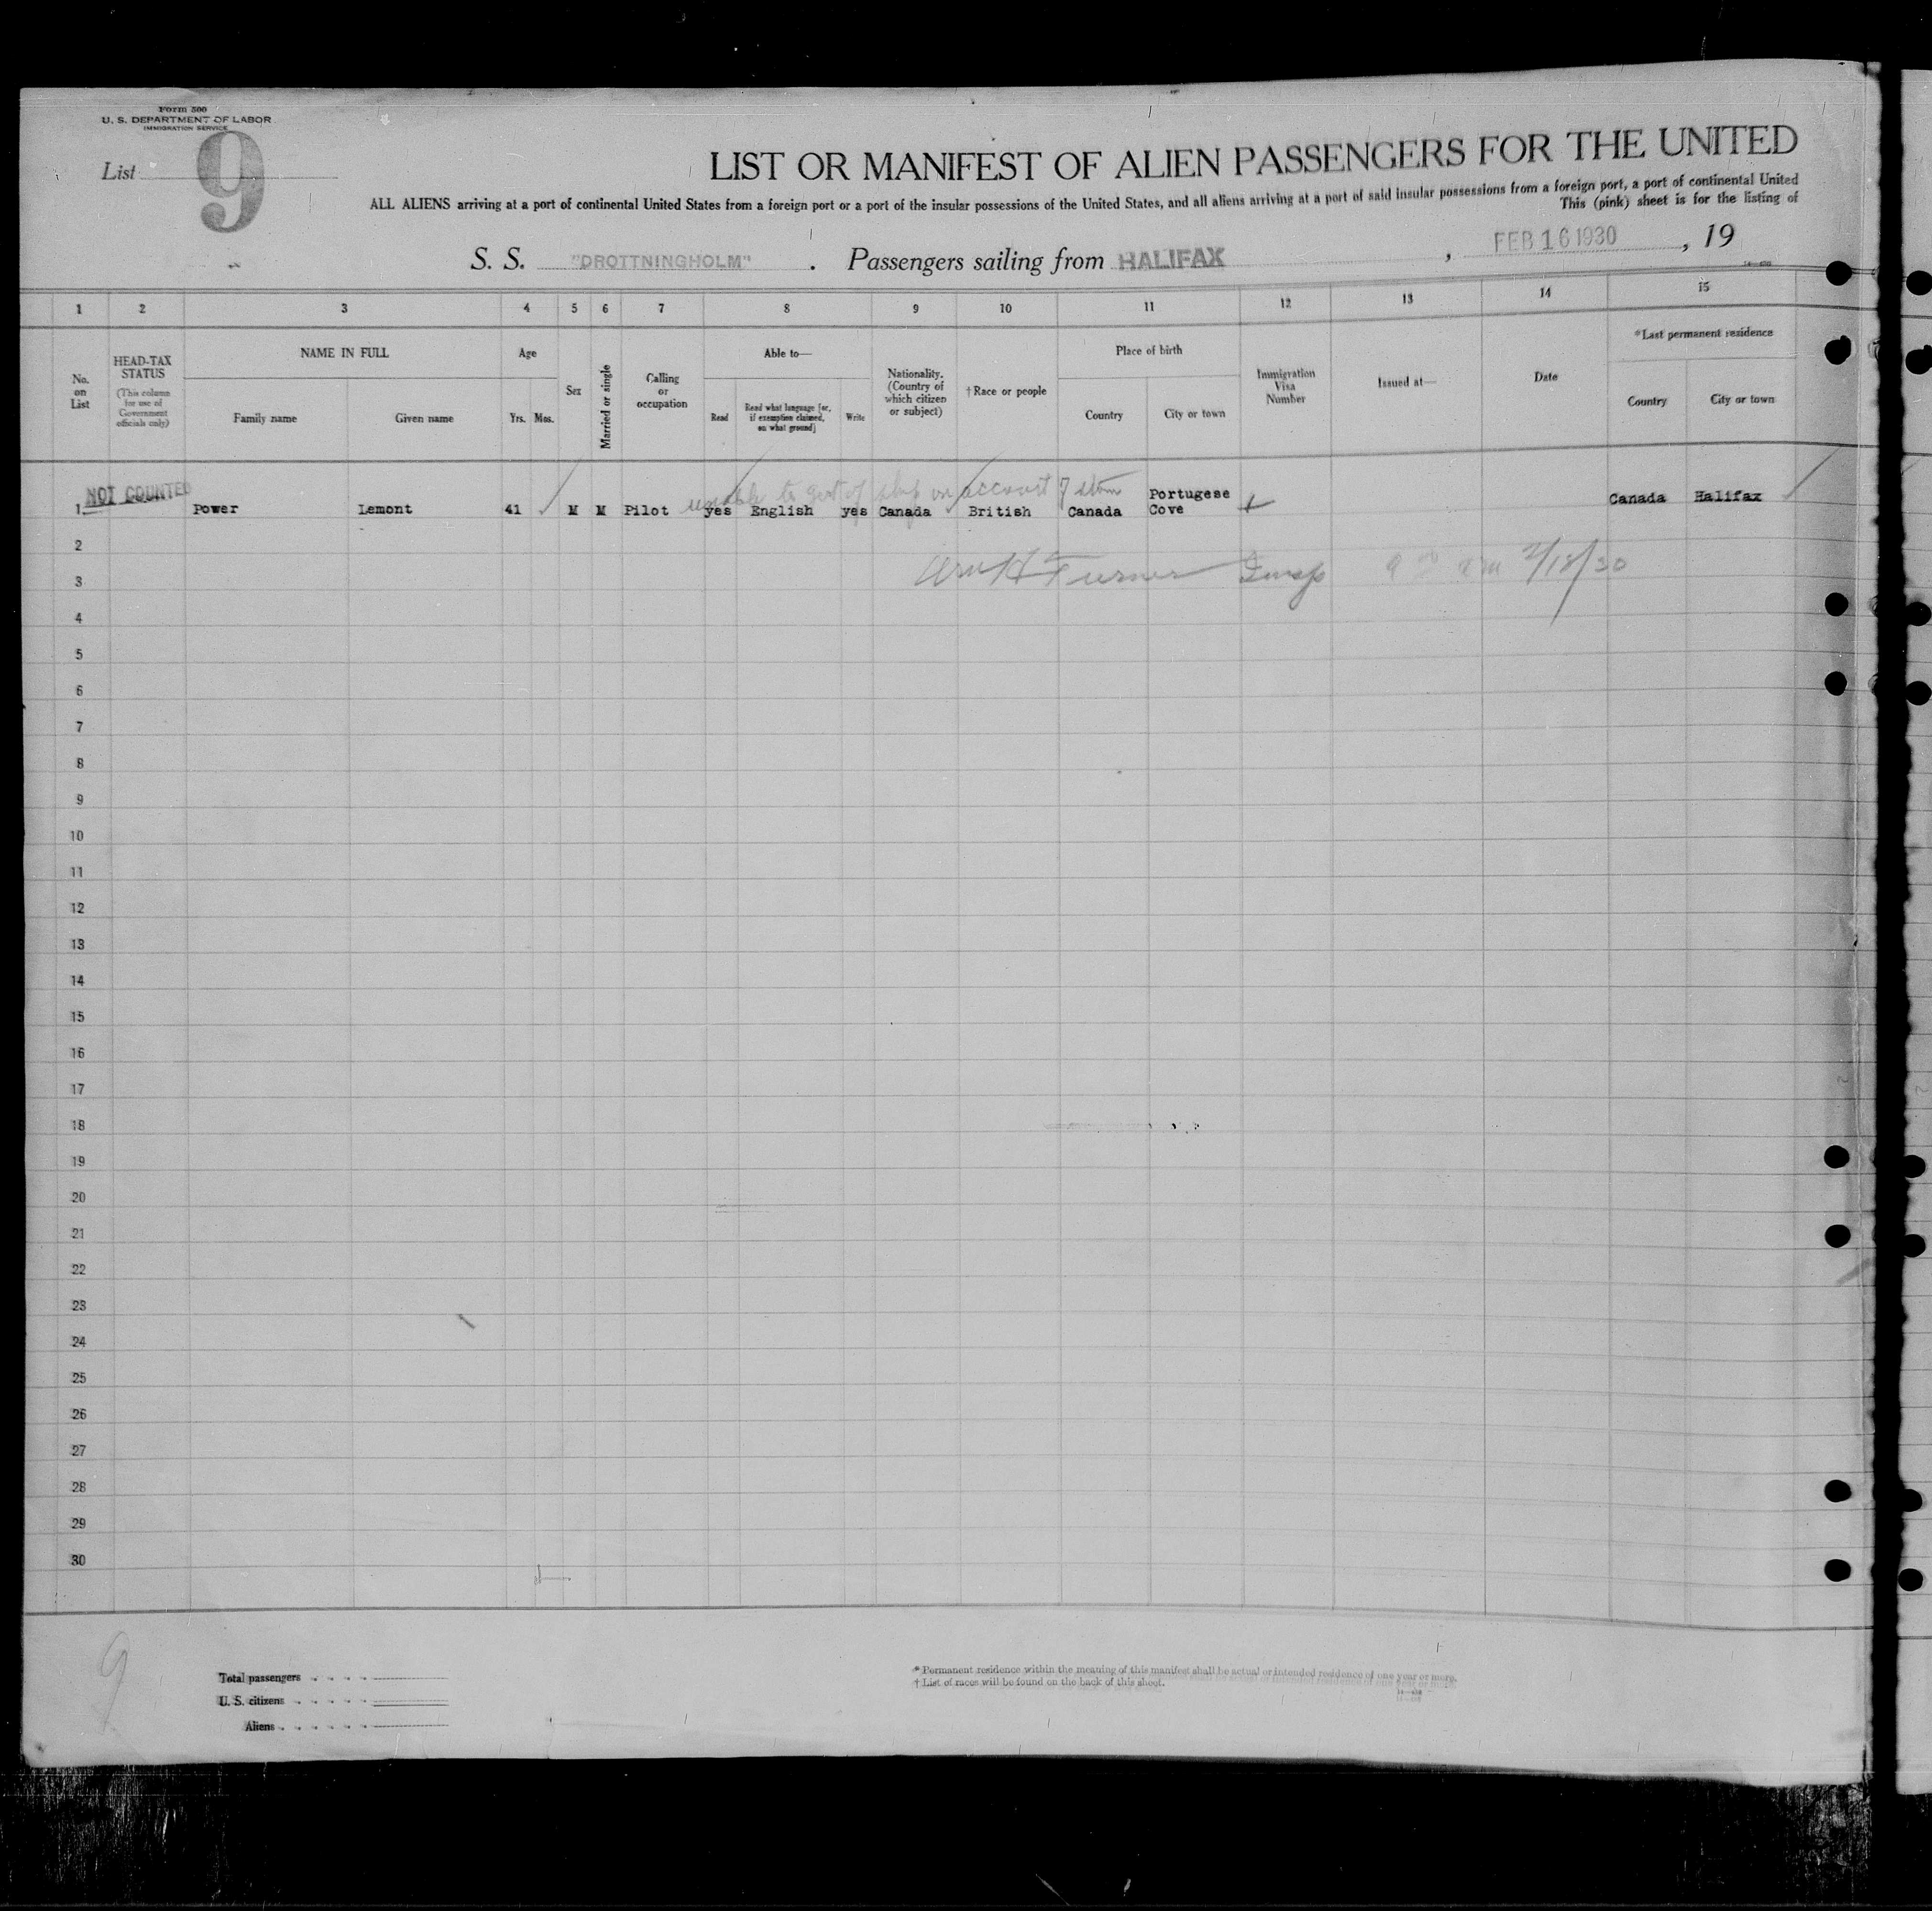 Form 500
U. S. DEPARTMENT OF LABOR
IMMIGRATION SERVICE
List 9
LIST OR MANIFEST OF ALIEN PASSENGERS FOR THE UNITED
ALL ALIENS arriving at a port of continental United States from a foreign port or a port of the insular possessions of the United States, and all aliens arriving at a port of said insular possessions from a foreign port, a port of continental United
This (pink) sheet is for the listing of
S. S. "DROTTNINGHOLM". Passengers sailing from HALIFAX, FEB 16 1930, 19
1 2 3 4 5 6 7 8 9 10 11 12 13 14 15
No. on List
HEAD-TAX STATUS
(This column for use of Government officials only)
NAME IN FULL
Family name Given name
Age
Yrs. Mos.
Sex
Married or single
Calling or occupation
Able to—
Read
Read what language [or, if exemption claimed, on what ground]
Write
Nationality. (Country of which citizen or subject)
†Race or people
Place of birth
Country City or town
Immigration Visa Number
Issued at—
Date
*Last permanent residence
Country City or town
NOT COUNTED
unable to get of ship on account of storm
1 Power Lemont 41 M M Pilot yes English yes Canada British Canada Portugese Cove Canada Halifax
2
H Turner Insp 9 am 2/18/30
3
4
5
6
7
8
9
10
11
12
13
14
15
16
17
18
19
20
21
22
23
24
25
26
27
28
29
30
9
Total passengers
U. S. citizens
Aliens
* Permanent residence within the meaning of this manifest shall be actual or intended residence of one year or more.
† List of races will be found on the back of this sheet.